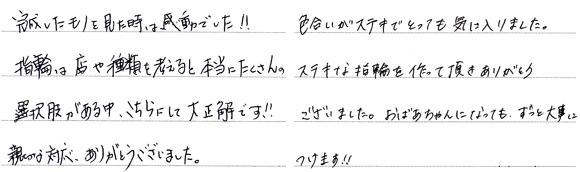 完成したモノを見た時は感動でした!!
指輪は店や種類を考えると本当にたくさんの
選択肢がある中、こちらにして大正解です!!
親切な対応、ありがとうございました。
色合いがステキでとっても気に入りました。
ステキな指輪を作って頂きありがとう
ございました。おばあちゃんになっても、ずっと大事に
つけます!!